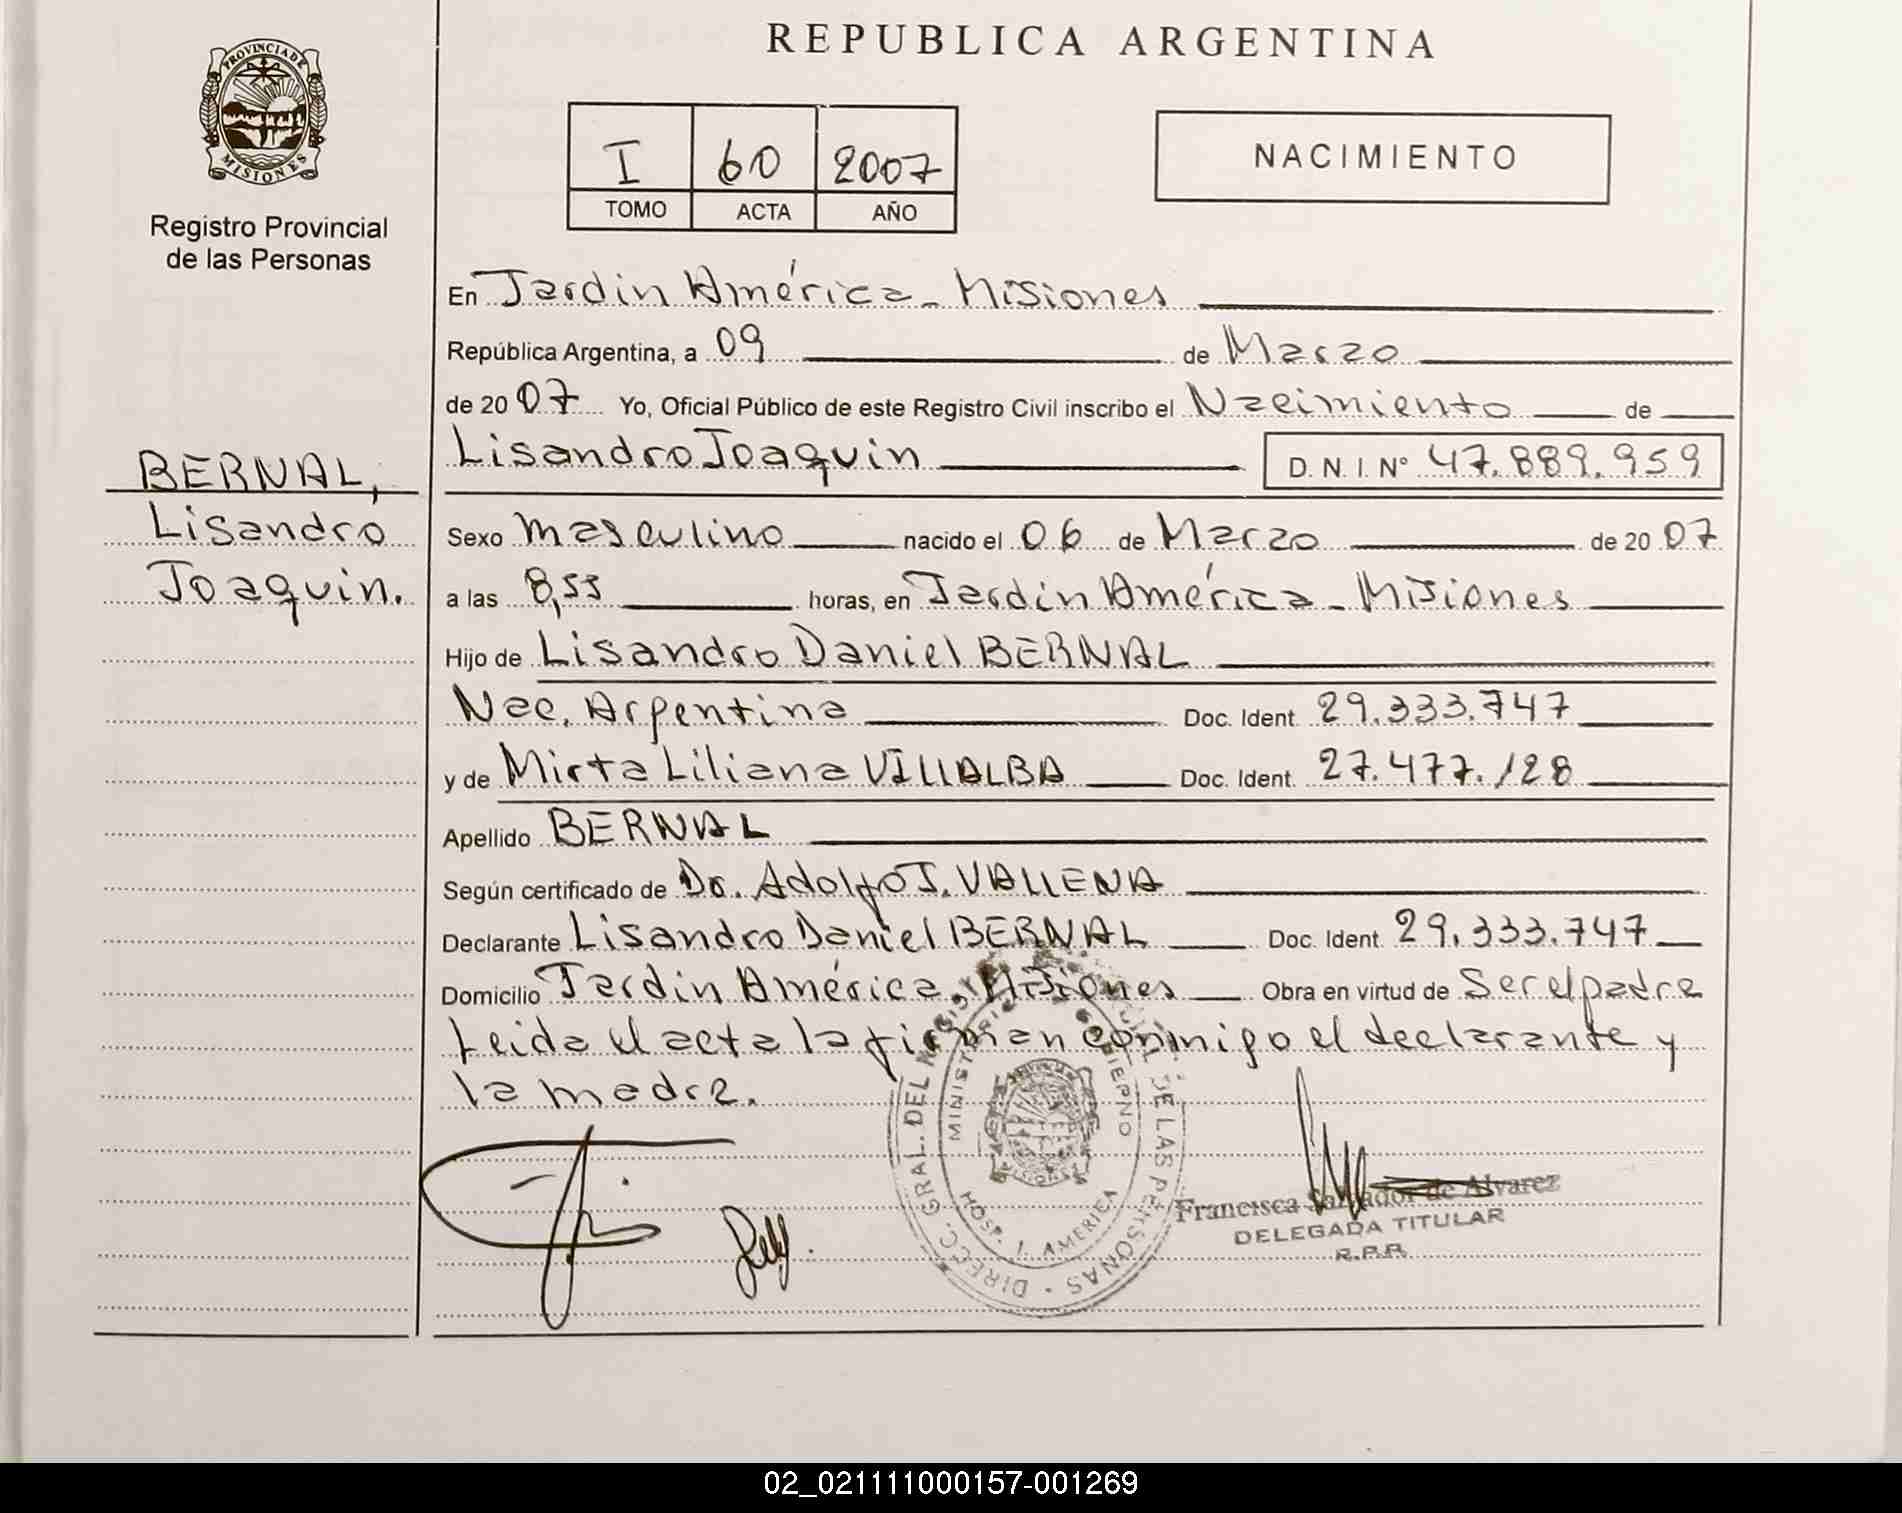 REPUBLICA ARGENTINA
PROVINCIA DE
MISIONES
Registro Provincial
de las Personas
I 60 2007
TOMO ACTA AÑO
NACIMIENTO
En Jardin América - Misiones
República Argentina, a 09 de Marzo
de 2007 Yo, Oficial Público de este Registro Civil inscribo el Nacimiento de
Lisandro Joaquin D. N. I. Nº 47.889.959
BERNAL,
Lisandro
Joaquin.
Sexo masculino nacido el 06 de Marzo de 2007
a las 8,53 horas, en Jardin América - Misiones
Hijo de Lisandro Daniel BERNAL
Nac. Argentina Doc. Ident. 29.333.747
y de Mirta Liliana VILLALBA Doc. Ident. 27.477.128
Apellido BERNAL
Según certificado de Dr. Adolfo J. VALLENA
Declarante Lisandro Daniel BERNAL Doc. Ident. 29.333.747
Domicilio Jardin América, Misiones Obra en virtud de Ser el padre
Leida el acta la firman conmigo el declarante y
la madre.
DIREC. GRAL. DEL DE LAS PERSONAS
MINISTERIO GOBIERNO
HOSP. J. AMERICA
Francisca Salvador de Alvarez
DELEGADA TITULAR
R.P.P.
02_021111000157-001269